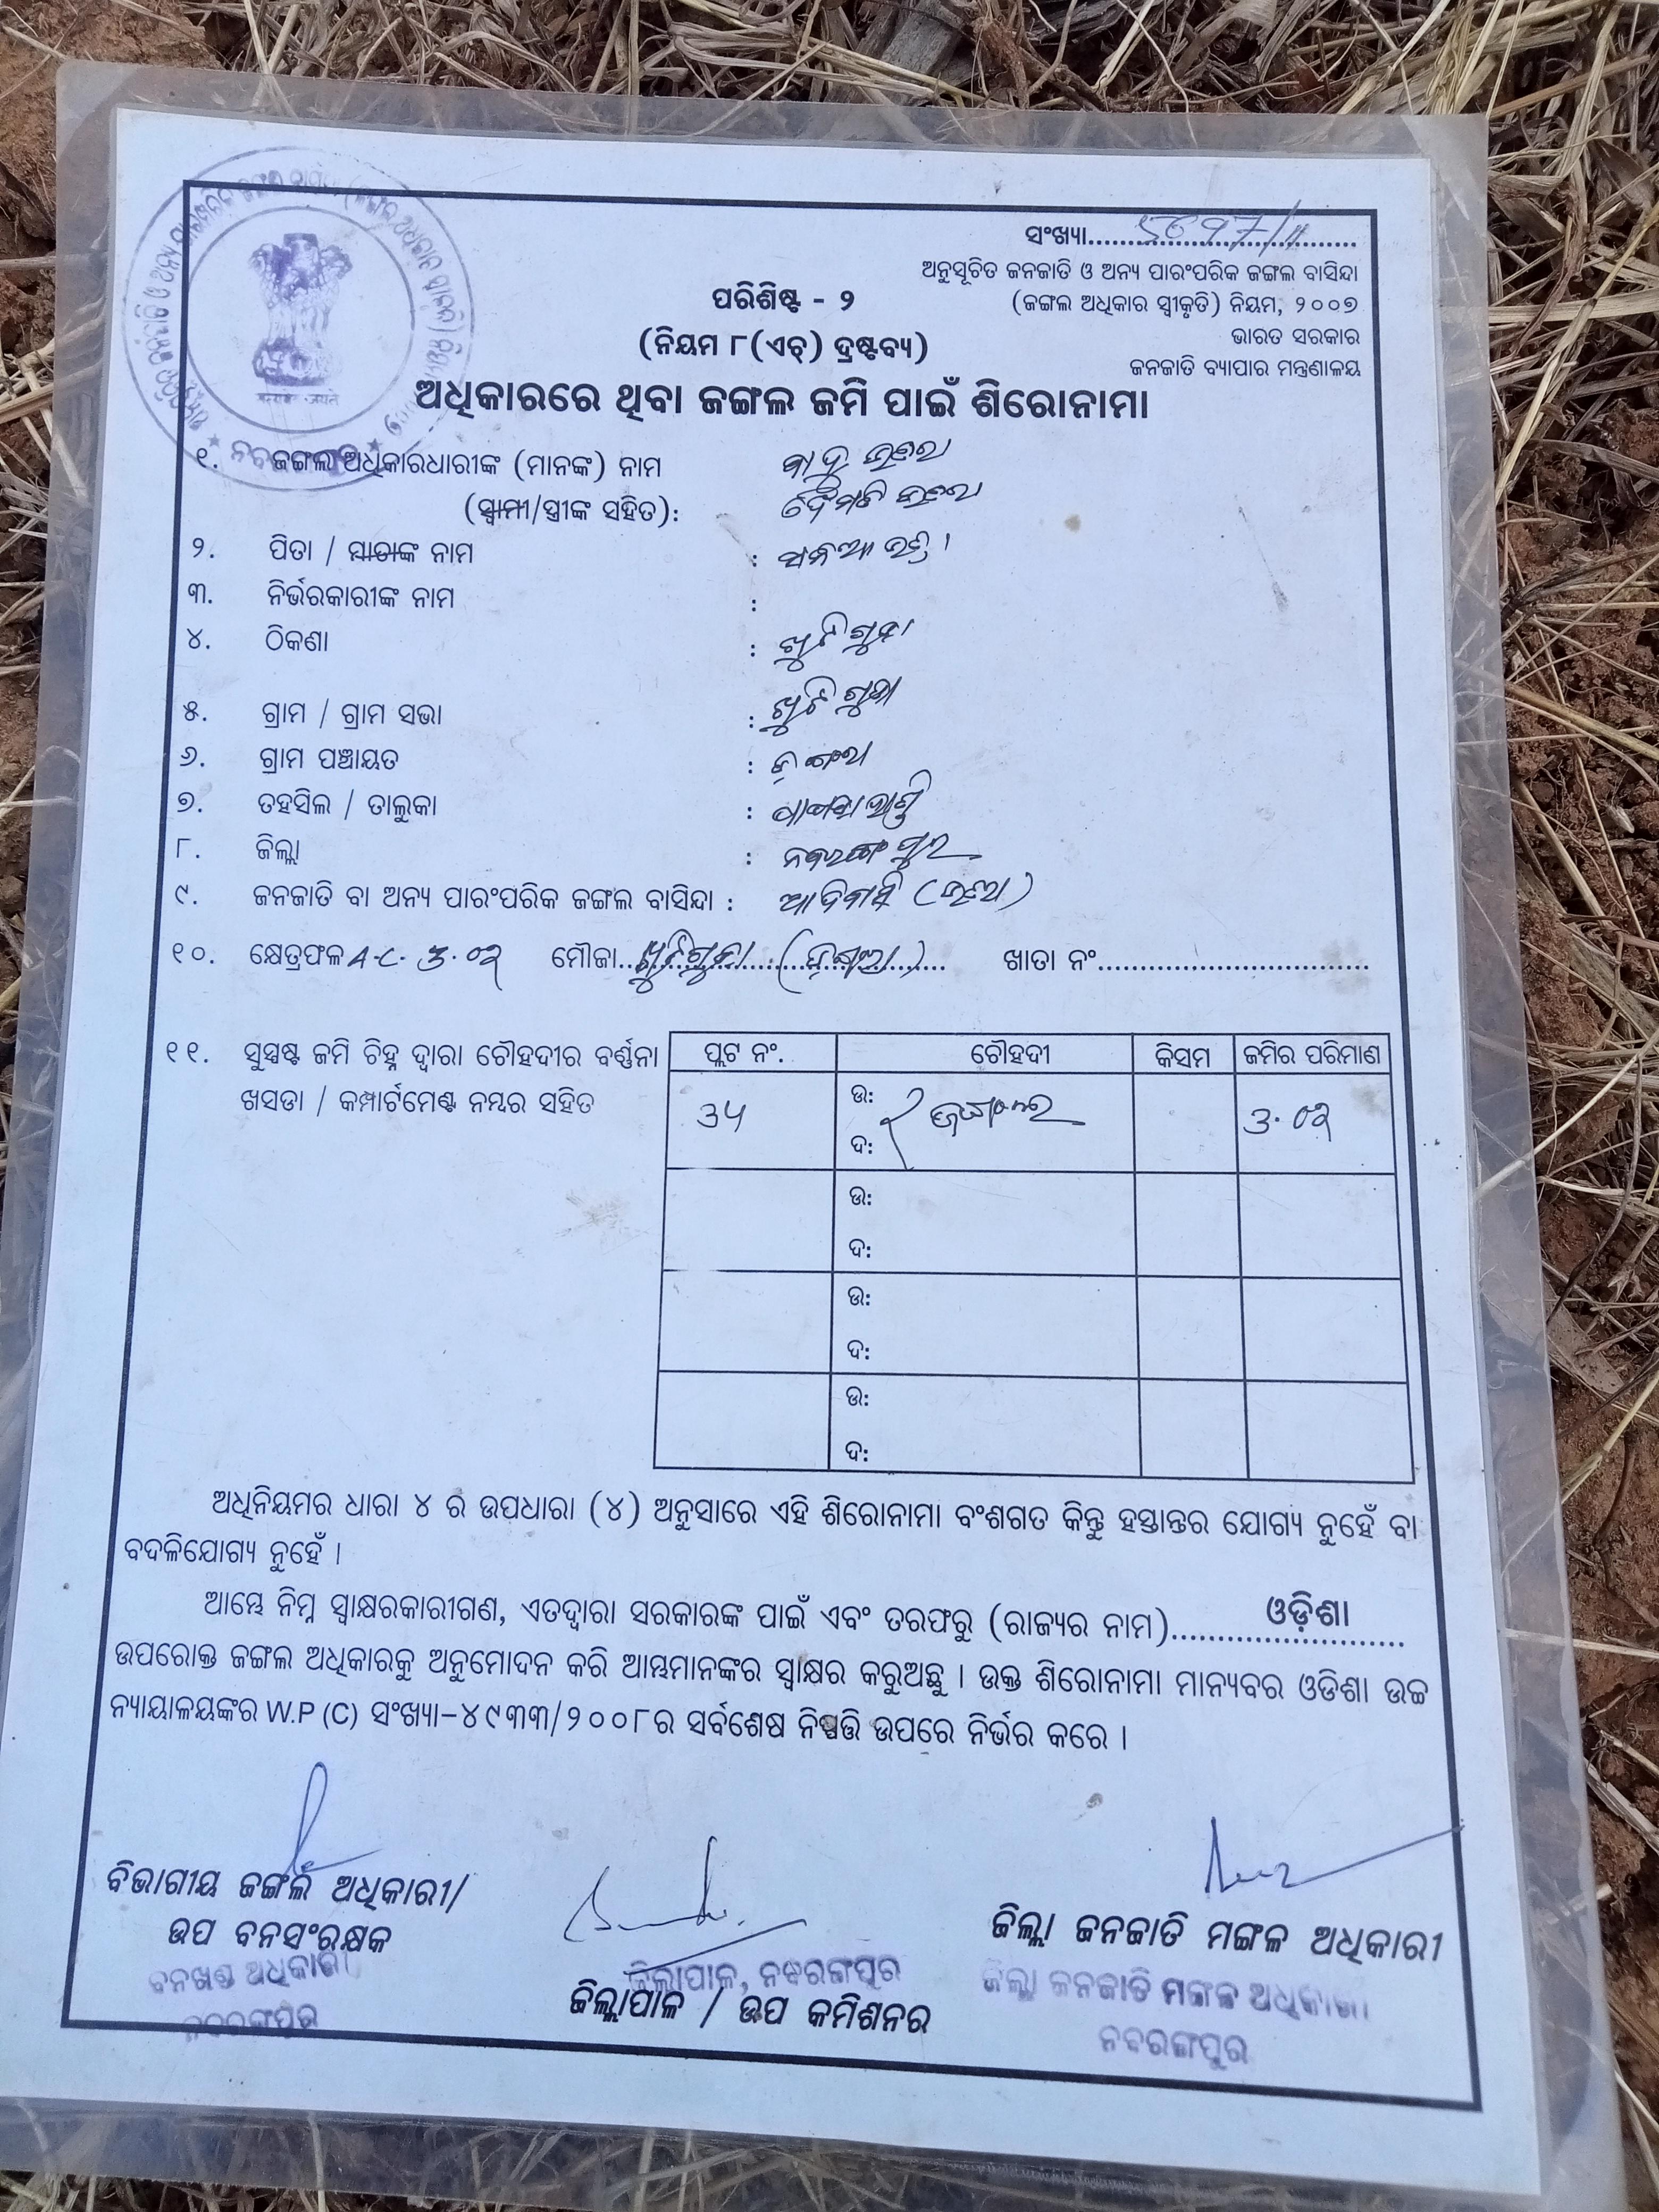 ସଂଖ୍ୟା
ଅନୁସୂଚିତ ଜନଜାତି ଓ ଅନ୍ୟ ପାରଂପରିକ ଜଙ୍ଗଲ ବାସିନ୍ଦା
(ଜଙ୍ଗଲ ଅଧିକାର ସ୍ୱୀକୃତି) ନିୟମ, ୨୦୦୭
ଭାରତ ସରକାର
ଜନଜାତି ବ୍ୟାପାର ମନ୍ତ୍ରଣାଳୟ
ପରିଶିଷ୍ଟ - ୨
(ନିୟମ ୮(ଏଚ୍) ଦ୍ରଷ୍ଟବ୍ୟ)
ଅଧିକାରରେ ଥିବା ଜଙ୍ଗଲ ଜମି ପାଇଁ ଶିରୋନାମା
୧. ଜଙ୍ଗଲ ଅଧିକାରଧାରୀଙ୍କ (ମାନଙ୍କ) ନାମ
(ସ୍ୱାମୀ/ସ୍ତ୍ରୀଙ୍କ ସହିତ):
୨. ପିତା / ମାତାଙ୍କ ନାମ :
୩. ନିର୍ଭରକାରୀଙ୍କ ନାମ :
୪. ଠିକଣା : ଖୁଟିଗୁଡା
୫. ଗ୍ରାମ / ଗ୍ରାମ ସଭା : ଖୁଟିଗୁଡା
୬. ଗ୍ରାମ ପଞ୍ଚାୟତ :
୭. ତହସିଲ / ତାଲୁକା : ପାପଡାହାଣ୍ଡି
୮. ଜିଲ୍ଲା : ନବରଙ୍ଗପୁର
୯. ଜନଜାତି ବା ଅନ୍ୟ ପାରଂପରିକ ଜଙ୍ଗଲ ବାସିନ୍ଦା : ଆଦିବାସି
୧୦. କ୍ଷେତ୍ରଫଳ A.C. ୩.୦୨ ମୌଜା ଖୁଟିଗୁଡା ଖାତା ନଂ
୧୧. ସୁସ୍ପଷ୍ଟ ଜମି ଚିହ୍ନ ଦ୍ୱାରା ଚୌହଦୀର ବର୍ଣ୍ଣନା
ଖସଡା / କମ୍ପାର୍ଟମେଣ୍ଟ ନମ୍ବର ସହିତ
ପ୍ଲଟ ନଂ. ଚୌହଦୀ କିସମ ଜମିର ପରିମାଣ
ଉ:
୩୫ ଜଙ୍ଗଲ ୩.୦୨
ଦ:
ଉ:
ଦ:
ଉ:
ଦ:
ଉ:
ଦ:
ଅଧିନିୟମର ଧାରା ୪ ର ଉପଧାରା (୪) ଅନୁସାରେ ଏହି ଶିରୋନାମା ବଂଶଗତ କିନ୍ତୁ ହସ୍ତାନ୍ତର ଯୋଗ୍ୟ ନୁହେଁ ବା
ବଦଳିଯୋଗ୍ୟ ନୁହେଁ ।
ଆମ୍ଭେ ନିମ୍ନ ସ୍ୱାକ୍ଷରକାରୀଗଣ, ଏତଦ୍ୱାରା ସରକାରଙ୍କ ପାଇଁ ଏବଂ ତରଫରୁ (ରାଜ୍ୟର ନାମ) ଓଡ଼ିଶା
ଉପରୋକ୍ତ ଜଙ୍ଗଲ ଅଧିକାରକୁ ଅନୁମୋଦନ କରି ଆମ୍ଭମାନଙ୍କର ସ୍ୱାକ୍ଷର କରୁଅଛୁ । ଉକ୍ତ ଶିରୋନାମା ମାନ୍ୟବର ଓଡିଶା ଉଚ୍ଚ
ନ୍ୟାୟାଳୟଙ୍କର W.P (C) ସଂଖ୍ୟା-୪୯୩୩/୨୦୦୮ର ସର୍ବଶେଷ ନିଷ୍ପତ୍ତି ଉପରେ ନିର୍ଭର କରେ ।
ବିଭାଗୀୟ ଜଙ୍ଗଲ ଅଧିକାରୀ/
ଉପ ବନସଂରକ୍ଷକ
ବନଖଣ୍ଡ ଅଧିକାରୀ
ନବରଙ୍ଗପୁର
ଜିଲ୍ଲାପାଳ, ନବରଙ୍ଗପୁର
ଜିଲ୍ଲାପାଳ / ଉପ କମିଶନର
ଜିଲ୍ଲା ଜନଜାତି ମଙ୍ଗଳ ଅଧିକାରୀ
ଜିଲ୍ଲା ଜନଜାତି ମଙ୍ଗଳ ଅଧିକାରୀ
ନବରଙ୍ଗପୁର